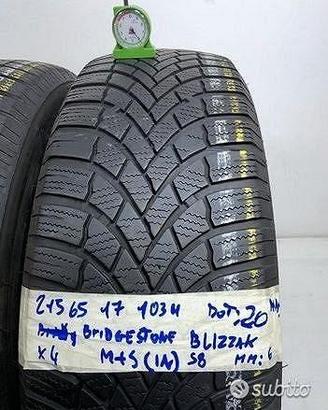 215 65 17 103H DOT: 20
BRIDGESTONE BLIZZAK
X4 M+S (IA) S8 MM: 6
subito